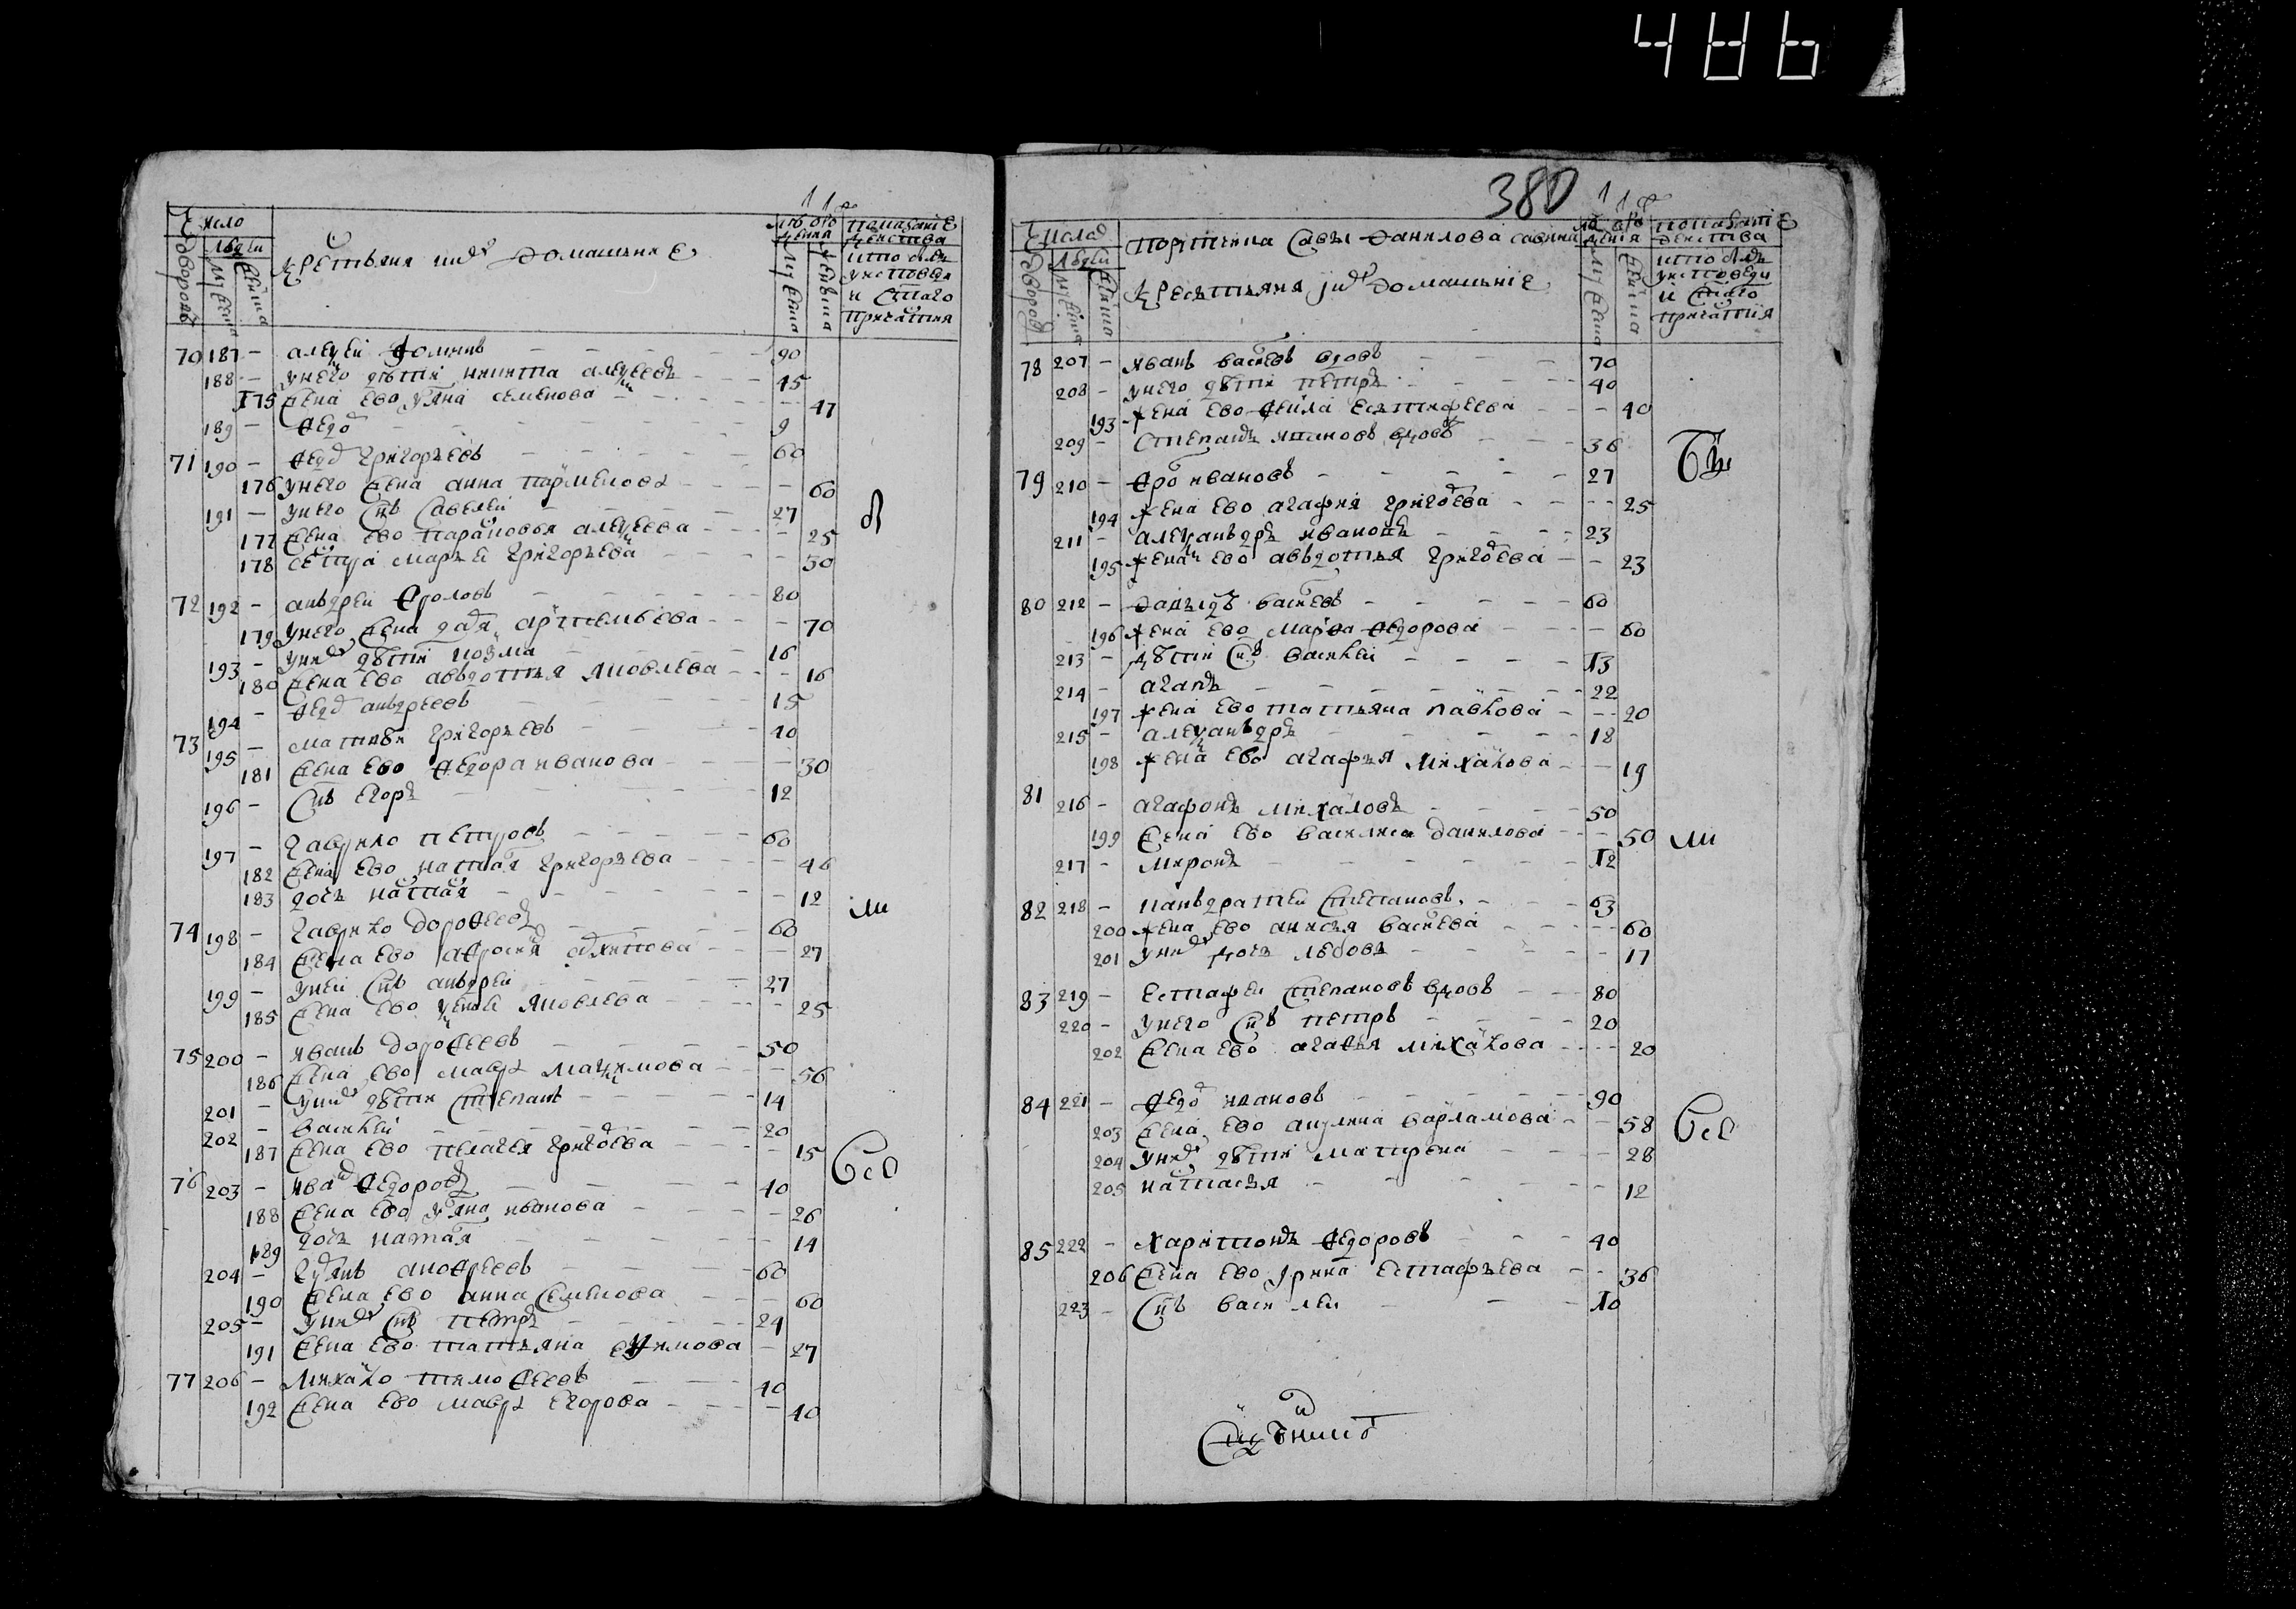 486
Число
дворовъ
людей
мужеска
женска
крестьяня и ихъ домашнiе
лѣто отъ рожденiя
мужеска
женска
показанiе
действа
кто былъ
у исповеди
и стаго
причастия
70 187 – алеѯеи Ѳоминъ – 90
188 – у него дѣти никита алеѯеевъ – 45
175 жена ево уляна семенова – 47
189 – Ѳедо – 9
71 190 – Ѳедо григорьевъ – 60
176 у него жена анна парменова – 60
191 – у него снъ савелеи – 27
177 жена ево парасковья алеѯеева – 25
178 сестра марья григорьева – 30
72 192 – андреи Ѳроловъ – 80
179 у него жена даря артемьева – 70
193 – у них дѣти козма – 16
180 жена ево авдотья яковлева – 16
194 – Ѳедо андреевъ – 15
73 195 – матвѣи григорьевъ – 40
181 жена ево Ѳедора иванова – 30
196 – снъ егоръ – 12
197 – гаврило петровъ – 60
182 жена ево настая григорьева – 46
183 дочь настая – 12
74 198 – гаврило дороѲеевъ – 60
184 жена ево аѲросиня архипова – 27
199 – у неи снъ андреи – 27
185 жена ево ѯенья яковлева – 25
75 200 – иванъ дороѲеевъ – 50
186 жена ево мавра маѯимова – 56
201 – у них дѣти степанъ – 14
202 – василеи – 20
187 жена ево пелагея григоева – 15
76 203 – иванъ Ѳедоровъ – 40
188 жена ево уляна иванова – 26
189 дочь настая – 14
204 – андреевъ – 60
190 жена ево анна семенова – 60
205 – у них снъ петръ – 24
191 жена ево татьяна – 27
77 206 – михаило тимоѲеевъ – 40
192 жена ево мавра егорова – 40
ли
всѣ
380
Число
дворовъ
людей
мужеска
женска
савы данилова савина
крестьяня и ихъ домашнiе
лѣто отъ рожденiя
мужеска
женска
показанiе
действа
кто былъ
у исповеди
и стаго
причастiя
78 207 – иванъ васиевъ вдовъ – 70
208 – у него дѣти петръ – 40
193 жена ево Ѳекла естифеева – 40
209 – степанъ ивановъ вдовъ – 36
79 210 – Ѳро ивановъ – 27
194 жена ево агафия григоева – 25
211 – алеѯандръ ивановъ – 23
195 жена ево авдотья григоева – 23
80 212 – давыдъ васиевъ – 60
196 жена ево марѲа Ѳедорова – 60
213 – дѣти снъ василеи – 13
214 – агапъ – 22
197 жена ево татьяна павлова – 20
215 – алеѯандръ – 18
198 жена ево агафья михайлова – 19
81 216 – агафонъ михайловъ – 50
199 жена ево василиса данилова – 50
217 – миронъ – 12
82 218 – панкратеи степановъ – 63
200 жена ево анисья васиева – 60
201 у них дочь любовь – 17
83 219 – естафеи степановъ вдовъ – 80
220 – у него снъ петръ – 20
202 жена ево агаѲья михайлова – 20
84 221 – Ѳедо ивановъ – 90
203 жена ево акулина варламова – 58
204 у них дѣти матрена – 28
205 настасья – 12
85 222 – харитонъ Ѳедоровъ – 40
206 жена ево ирина естафьева – 36
223 – снъ василеи – 10
бы
ли
всѣ